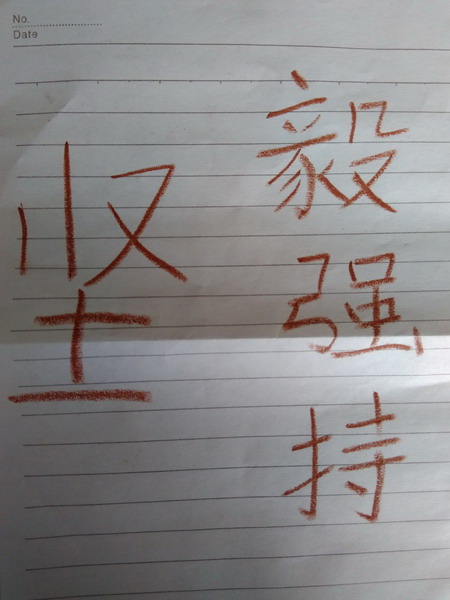 No.
Date
坚
毅
强
持